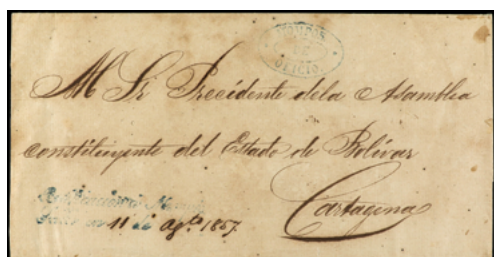 MOMPOS
DE OFICIO
Al Sr Precidente dela Asamblea
constituyente del Estado de Bolívar
Cartagena
11 de Agto 1857.